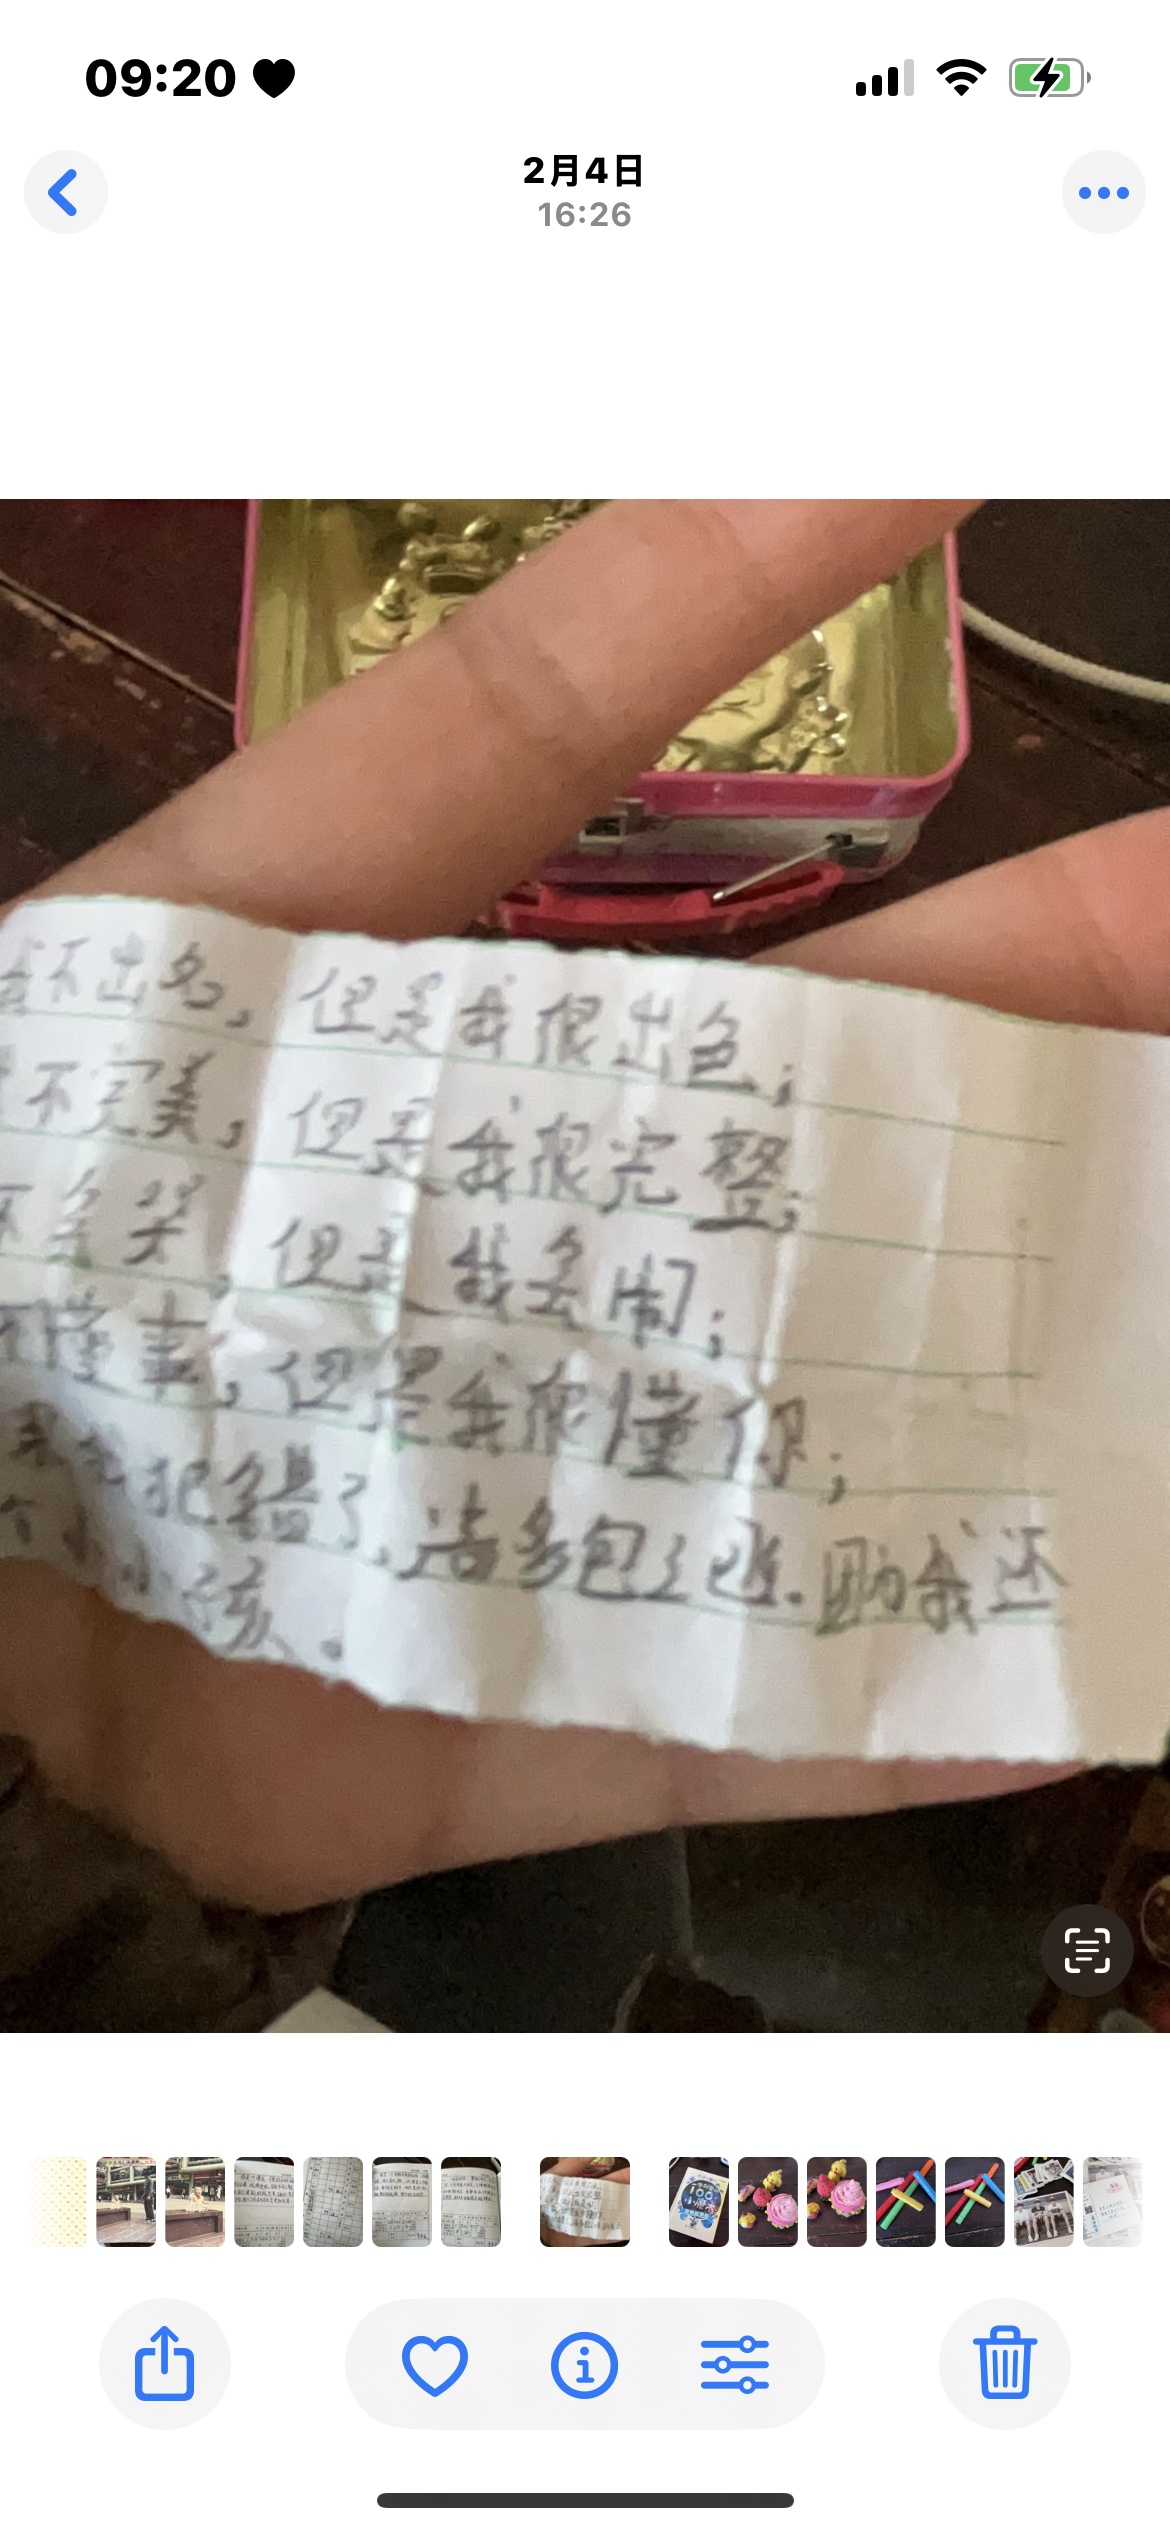 09:20
2月4日
16:26
不出名，但是我很出色；
不完美，但是我很完整；
不会笑，但是我会闹；
不懂事，但是我很懂你；
犯错了，请多包了涵.因为我还
个小孩。